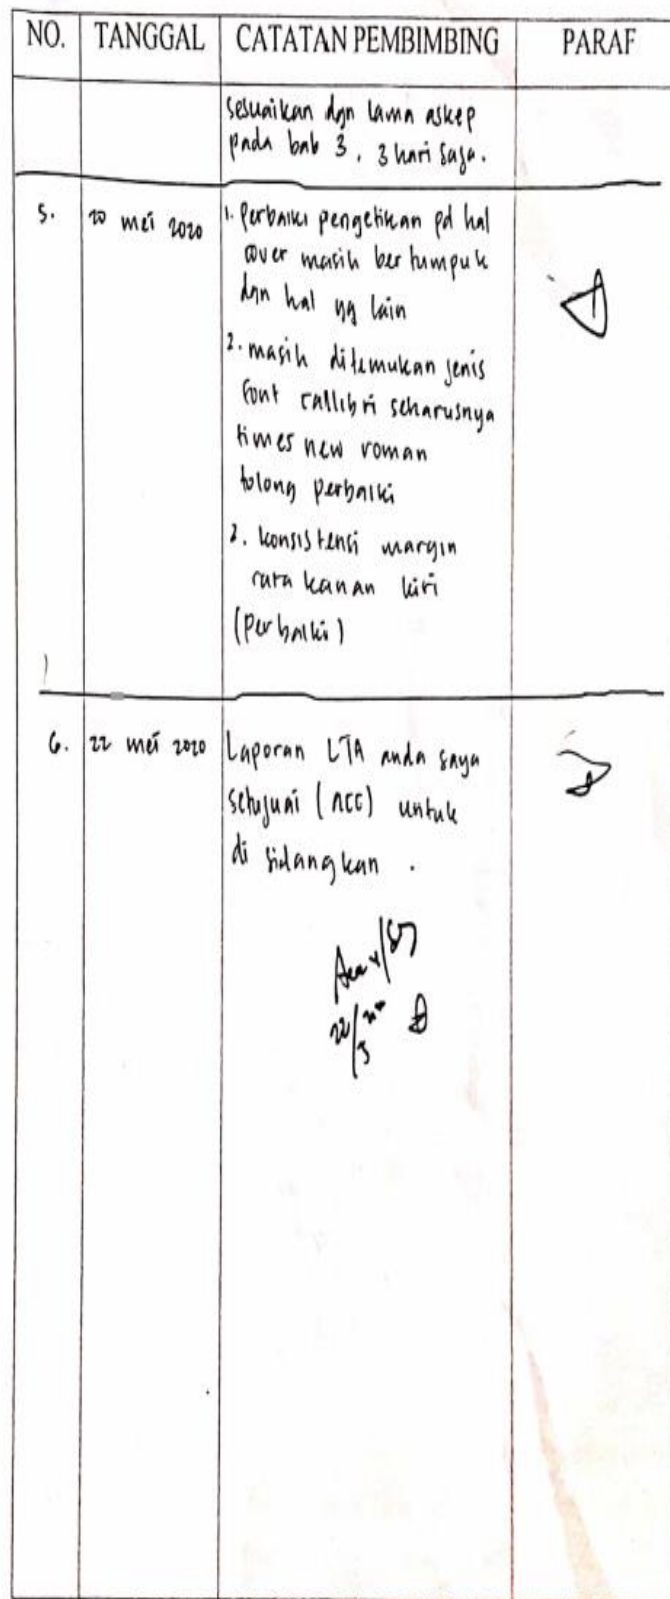 NO. TANGGAL CATATAN PEMBIMBING PARAF
sesuaikan dgn lama askep
pada bab 3, 3 hari saja.
5. 20 mei 2020 1. Perbaiki pengetikan pd hal
cover masih bertumpuk
dgn hal yg lain
2. masih ditemukan jenis
font callibri seharusnya
times new roman
tolong perbaiki
3. konsistensi margin
rata kanan kiri
(perbaiki)
6. 22 mei 2020 Laporan LTA anda saya
setujuai (ACC) untuk
di sidangkan .
22/5